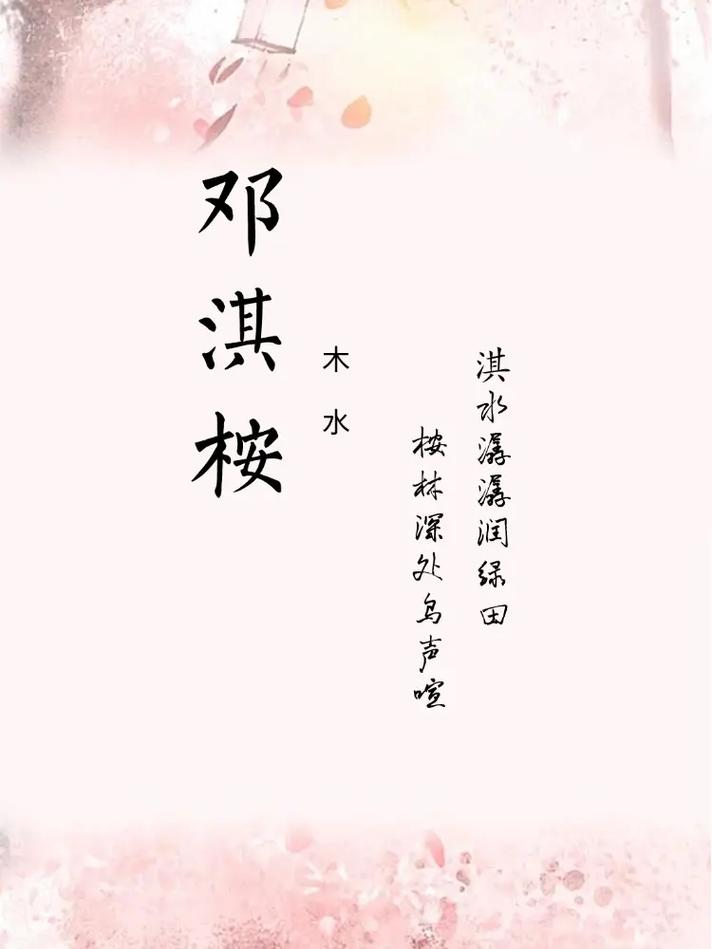 邓淇桉
木水
淇水潺潺润绿田
桉林深处鸟声喧